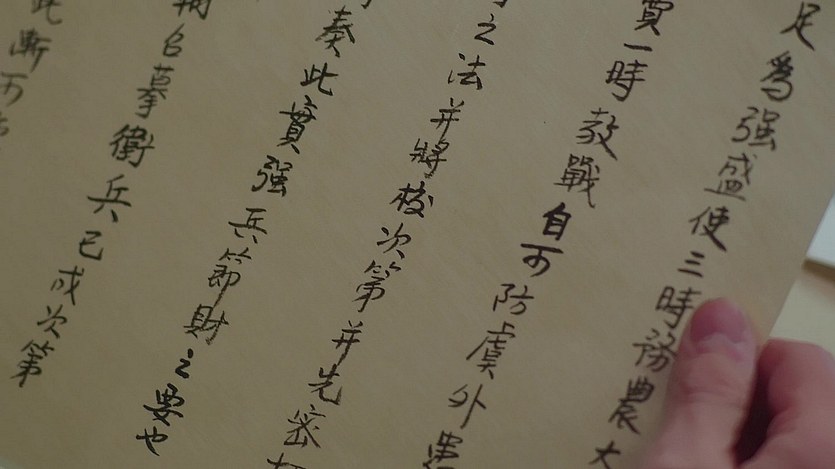 足為强盛使三時務農大
實一時教戰自可防虞外患
之法并將校次第并先密
奏此實强兵節財之要也
召募衛兵已成次第
此漸可